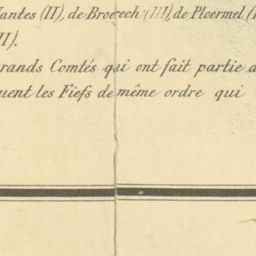 Nantes (II), de Broerech (III), de Ploermel (
II).
rands Comtés qui ont fait partie d
uent les Fiefs de même ordre qui